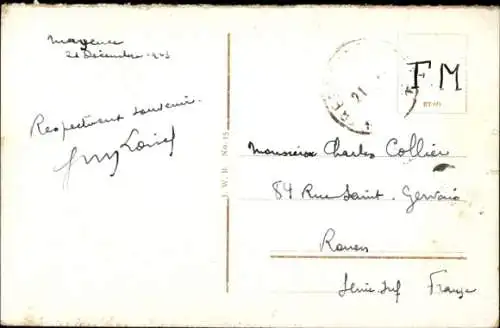 Mayence
21 Décembre
Respectueux souvenir.
F M
21
J. W. B. No. 15
Monsieur Charles Collier
84 Rue Saint. Gervais
Rouen
Seine Inf France